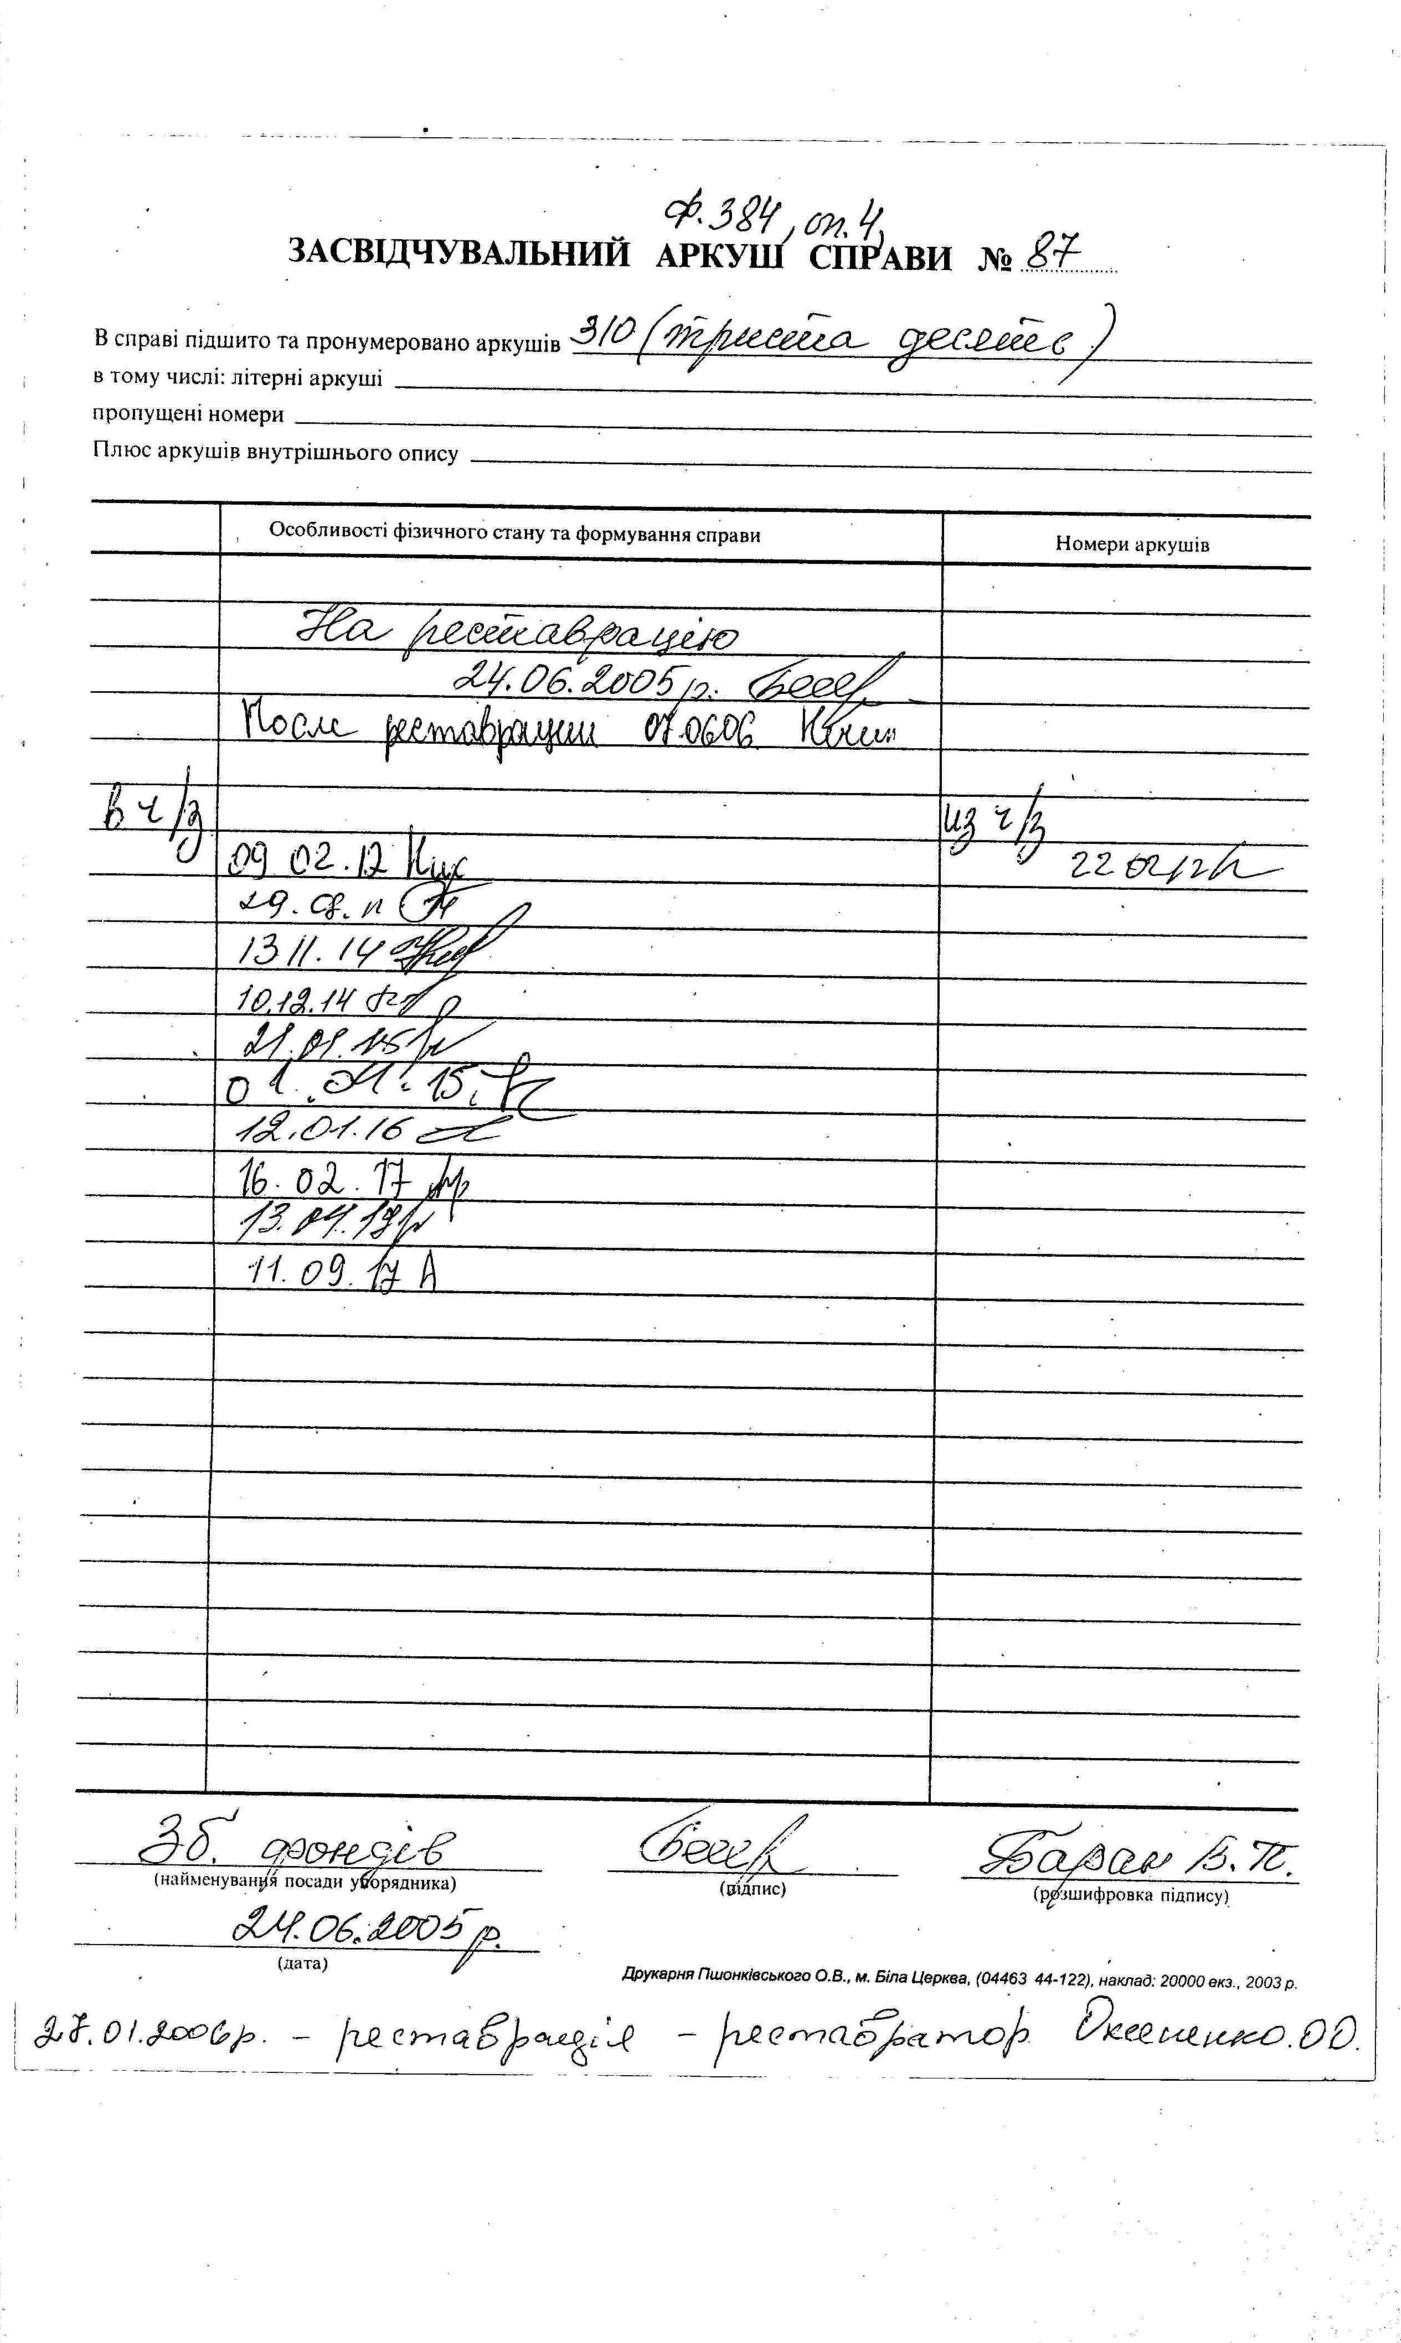 Ф. 384, оп. 4,
ЗАСВІДЧУВАЛЬНИЙ АРКУШ СПРАВИ № 87
В справі підшито та пронумеровано аркушів 310 (триста десять)
в тому числі: літерні аркуші
пропущені номери
Плюс аркушів внутрішнього опису
Особливості фізичного стану та формування справи Номери аркушів
На реставрацію
24.06.2005 р.
После реставрации 07.06.06
в ч/з из ч/з
09 02.12 22 02 12
29. 08.
13 11. 14
10.12.14
21.01.15
01. 15.
12.01.16
16. 02. 17
13.04.
11. 09. 17 А
Зб. фондів Баран В.П.
(найменування посади упорядника) (підпис) (розшифровка підпису)
24.06.2005 р.
(дата)
Друкарня Пшонківського О.В., м. Біла Церква, (04463 44-122), наклад: 20000 екз., 2003 р.
27.01.2006р. – реставрація – реставратор